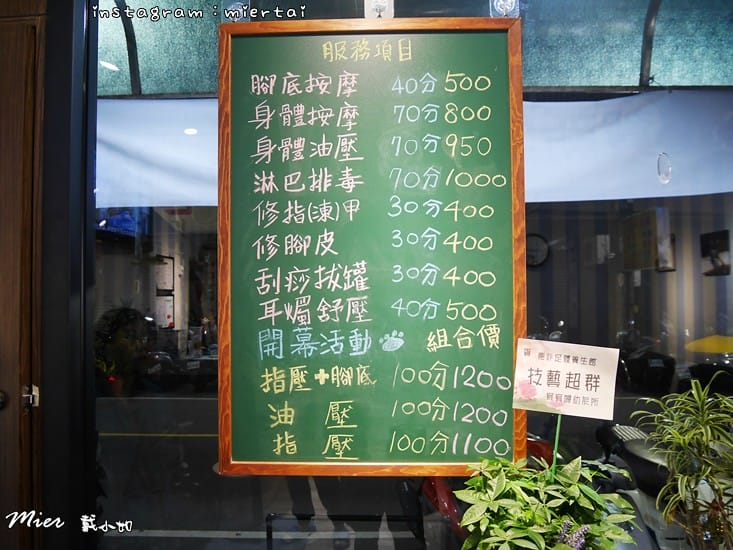 instagram：miertai
服務項目
腳底按摩 40分500
身體按摩 70分800
身體油壓 70分950
淋巴排毒 70分1000
修指(凍)甲 30分400
修腳皮 30分400
刮痧拔罐 30分400
耳燭舒壓 40分500
開幕活動 組合價
指壓+腳底 100分1200
油 壓 100分1200
指 壓 100分1100
足體養生館
技藝超群
Mier 戴小如